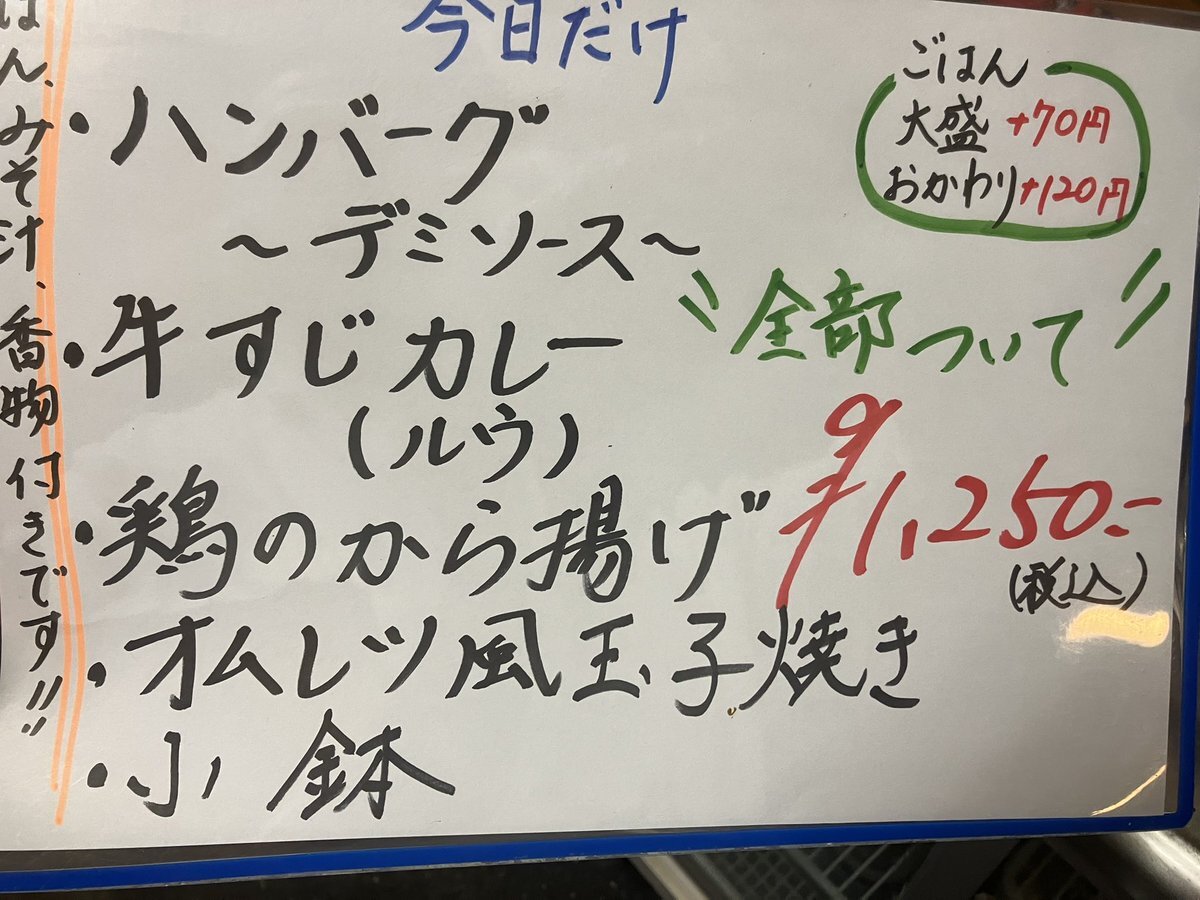 今日だけ
・ハンバーグ
～デミソース～
・牛すじカレー
(ルウ)
・鶏のから揚げ
・オムレツ風玉子焼き
・小鉢
ごはん
大盛 +70円
おかわり+120円
全部ついて
¥1,250.-
(税込)
はん、みそ汁、香物付きです!!